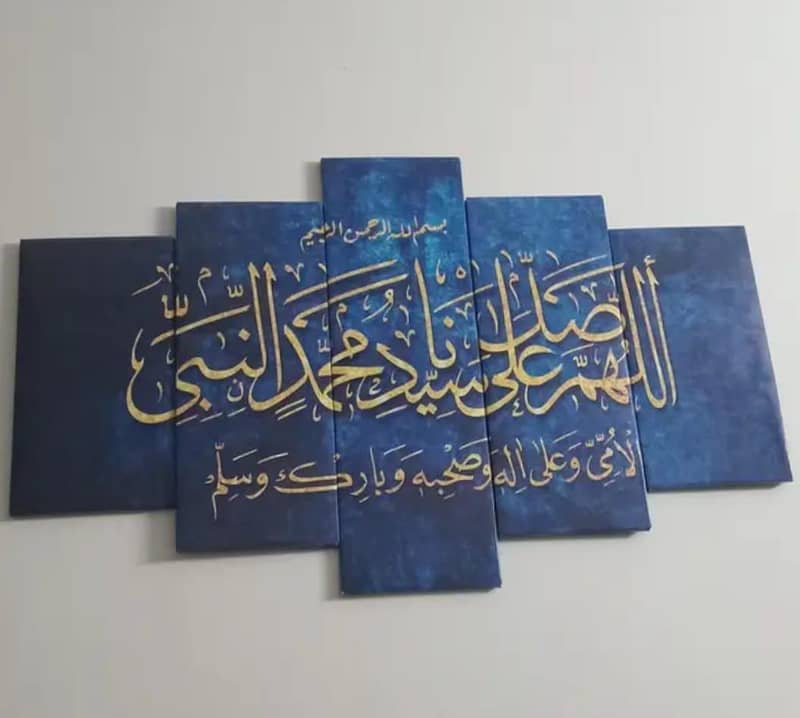 بسم الله الرحمن الرحيم
أللهم صل على سيدنا محمد النبي
الأمي وعلى اله وصحبه وبارك وسلم